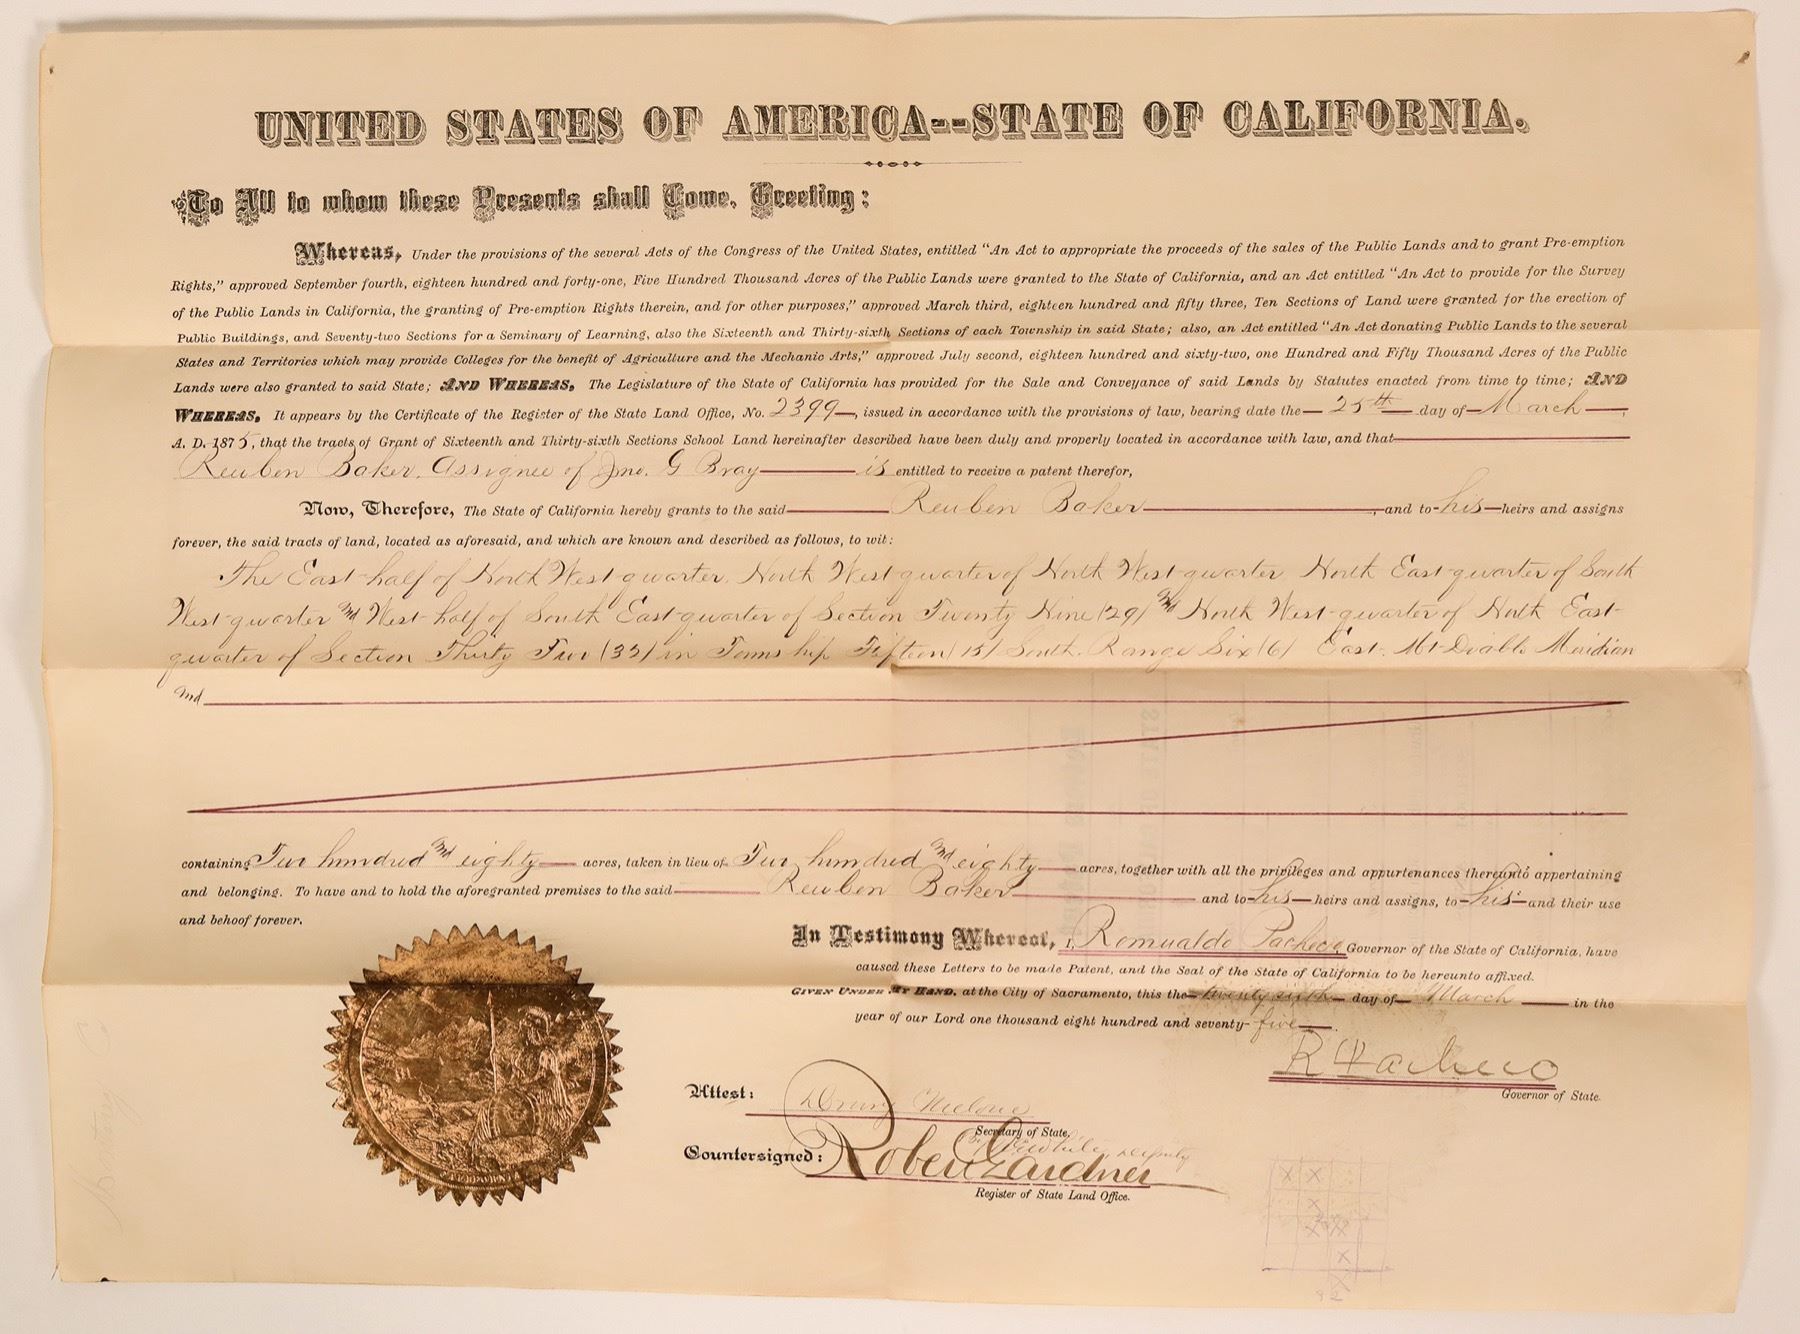 UNITED STATES OF AMERICA--STATE OF CALIFORNIA.
To All to whom these Presents shall Come, Greeting:
Whereas, Under the provisions of the several Acts of the Congress of the United States, entitled "An Act to appropriate the proceeds of the sales of the Public Lands and to grant Pre-emption
Rights," approved September fourth, eighteen hundred and forty-one, Five Hundred Thousand Acres of the Public Lands were granted to the State of California, and an Act entitled "An Act to provide for the Survey
of the Public Lands in California, the granting of Pre-emption Rights therein, and for other purposes," approved March third, eighteen hundred and fifty three, Ten Sections of Land were granted for the erection of
Public Buildings, and Seventy-two Sections for a Seminary of Learning, also the Sixteenth and Thirty-sixth Sections of each Township in said State; also, an Act entitled "An Act donating Public Lands to the several
States and Territories which may provide Colleges for the benefit of Agriculture and the Mechanic Arts," approved July second, eighteen hundred and sixty-two, one Hundred and Fifty Thousand Acres of the Public
Lands were also granted to said State; AND WHEREAS, The Legislature of the State of California has provided for the Sale and Conveyance of said Lands by Statutes enacted from time to time; AND
WHEREAS, It appears by the Certificate of the Register of the State Land Office, No. 2399, issued in accordance with the provisions of law, bearing date the 25th day of March,
A. D. 1875, that the tracts of Grant of Sixteenth and Thirty-sixth Sections School Land hereinafter described have been duly and properly located in accordance with law, and that
Reuben Baker, Assignee of Jno. G Bray is entitled to receive a patent therefor,
Now, Therefore, The State of California hereby grants to the said Reuben Baker, and to his heirs and assigns
forever, the said tracts of land, located as aforesaid, and which are known and described as follows, to wit:
The East-half of North West-quarter, North West-quarter of North West-quarter, North East-quarter of South
West-quarter and West-half of South East-quarter of Section Twenty Nine (29) and North West-quarter of North East-
quarter of Section Thirty Two (32) in Township Fifteen (15) South, Range Six (6) East, Mt Diablo Meridian
and
containing Two hundred and eighty acres, taken in lieu of Two hundred and eighty acres, together with all the privileges and appurtenances thereunto appertaining
and belonging. To have and to hold the aforegranted premises to the said Reuben Baker and to his heirs and assigns, to his and their use
and behoof forever.
In Testimony Whereof, I, Romualdo Pacheco, Governor of the State of California, have
caused these Letters to be made Patent, and the Seal of the State of California to be hereunto affixed.
GIVEN UNDER MY HAND, at the City of Sacramento, this the twenty sixth day of March in the
year of our Lord one thousand eight hundred and seventy-five.
R Pacheco
Governor of State.
Attest: Drury Melone
Secretary of State.
Deputy
Countersigned: Robert Gardner
Register of State Land Office.